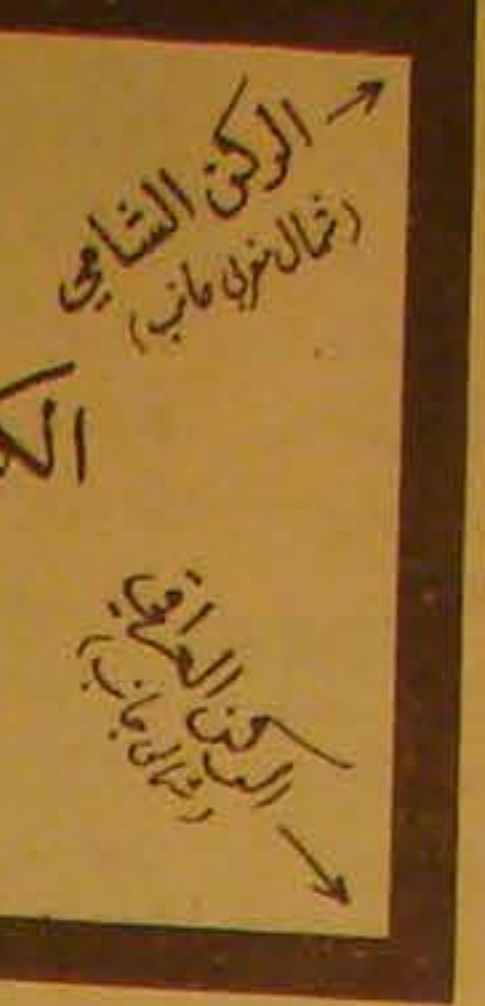 الركن الشامي
(شمال غربی جانب)
الركن العراقي
(شمالی جانب)